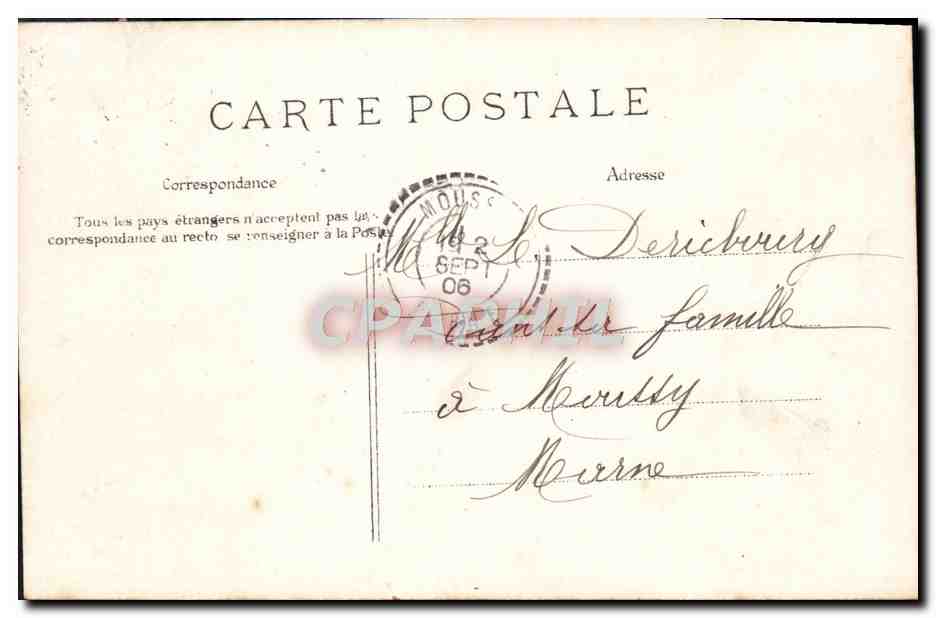 CARTE POSTALE
Correspondance
Adresse
Tous les pays étrangers n'acceptent pas la
correspondance au recto se renseigner à la Poste
MOUSS
2
SEPT
06
CPAPHIL
Mlle Deribourg
dans sa famille
à Moussy
Marne